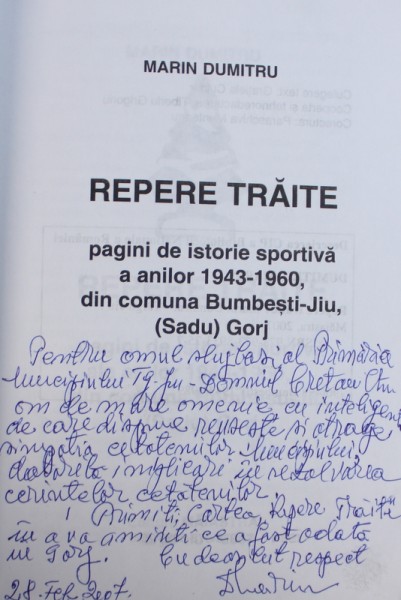 MARIN DUMITRU
REPERE TRĂITE
pagini de istorie sportivă
a anilor 1943-1960,
din comuna Bumbești-Jiu,
(Sadu) Gorj
Pentru omul slujbaș al Primăriei
Municipiului Tg-Jiu - Domnul Crețan
om de mare omenie, cu inteligen
de care dispune reușește și atrage
simpatia cetățenilor Municipiului,
datorită implicare în rezolvarea
cerințelor cetățenilor.
Primiți, Cartea, Repere Trăite
în a vă aminti ce a fost odată
în Gorj. Cu deosebit respect
28. Feb 2007.